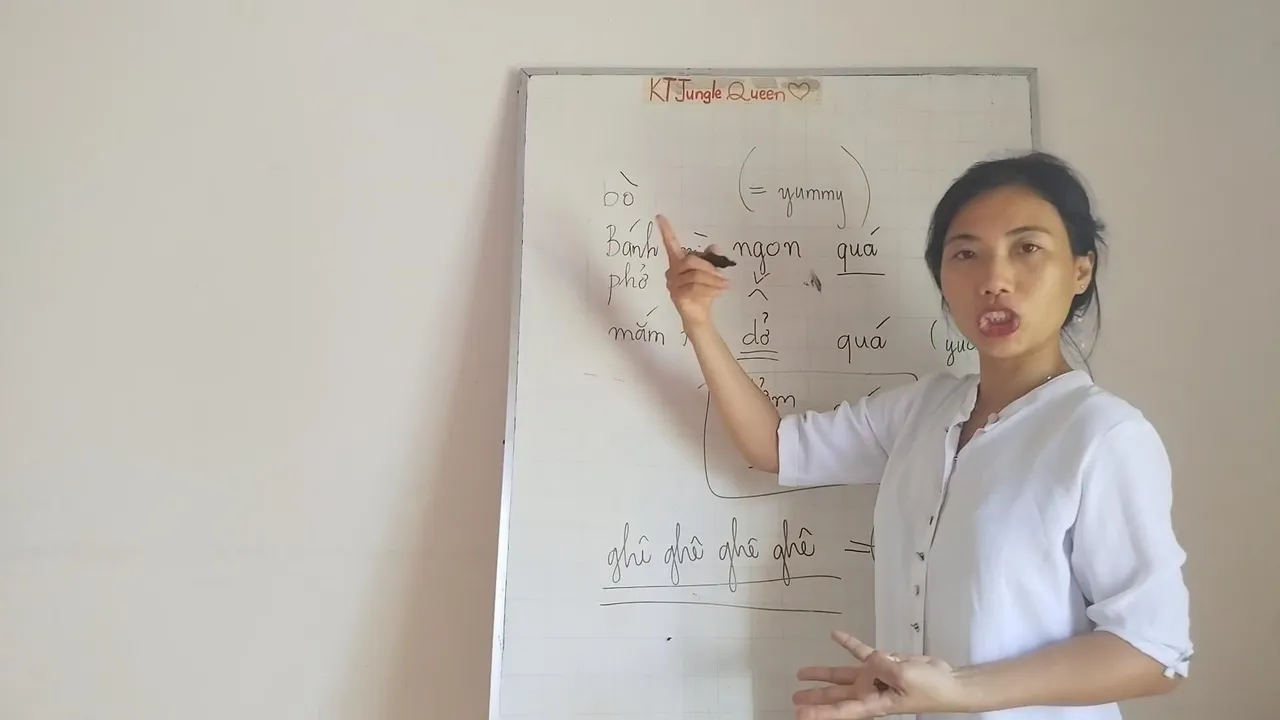 KT Jungle Queen
bò (= yummy)
Bánh mì ngon quá
phở
mắm dở quá
quá
ghê ghê ghê ghê =(